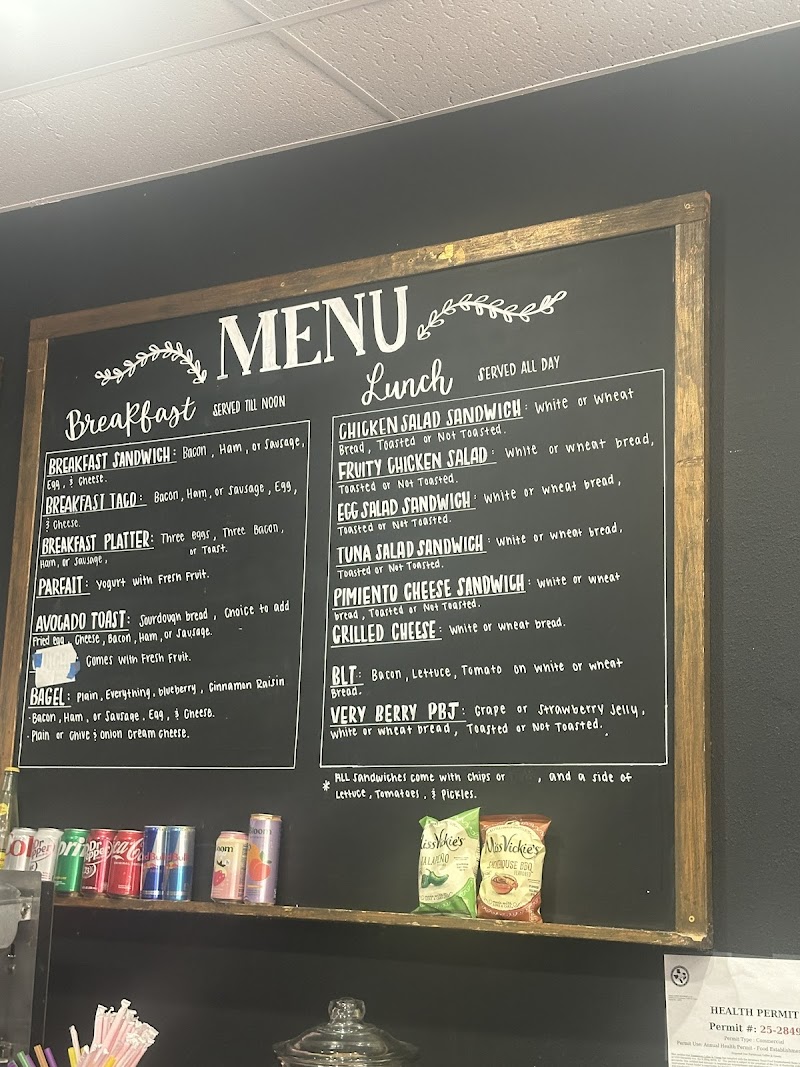 MENU
Breakfast SERVED TILL NOON
BREAKFAST SANDWICH: Bacon, Ham, or Sausage,
Egg, & Cheese.
BREAKFAST TACO: Bacon, Ham, or Sausage, Egg,
& Cheese.
BREAKFAST PLATTER: Three eggs, Three Bacon,
Ham, or Sausage, or Toast.
PARFAIT: Yogurt with Fresh Fruit.
AVOCADO TOAST: Sourdough bread, Choice to add
Fried egg, Cheese, Bacon, Ham, or Sausage.
Comes with Fresh Fruit.
BAGEL: Plain, Everything, blueberry, Cinnamon Raisin
-Bacon, Ham, or Sausage, Egg, & Cheese.
-Plain or Chive & onion Cream cheese.
Lunch SERVED ALL DAY
CHICKEN SALAD SANDWICH: White or Wheat
Bread, Toasted or Not Toasted.
FRUITY CHICKEN SALAD: White or wheat bread,
Toasted or Not Toasted.
EGG SALAD SANDWICH: White or wheat bread,
Toasted or Not Toasted.
TUNA SALAD SANDWICH: White or wheat bread,
Toasted or Not Toasted.
PIMIENTO CHEESE SANDWICH: White or wheat
bread, Toasted or Not Toasted.
GRILLED CHEESE: White or wheat bread.
BLT: Bacon, Lettuce, Tomato on white or wheat
Bread.
VERY BERRY PBJ: Grape or Strawberry Jelly,
White or wheat bread, Toasted or Not Toasted.
* ALL Sandwiches come with chips or , and a side of
Lettuce, Tomatoes, & Pickles.
Dr Pepper
Coca-Cola
Red Bull
Red Bull
bloom
Miss Vickie's
JALAPEÑO
Miss Vickie's
SMOKEHOUSE BBQ
HEALTH PERMIT
Permit #: 25-2849
Permit Type: Commercial
Permit Use: Annual Health Permit - Food Establishment